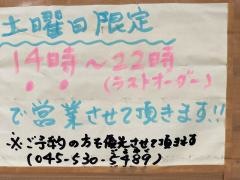 土曜日限定
14時~22時
(ラストオーダー)
で営業させて頂きます!!
※ご予約の方を優先させて頂きます
(045-530-5489)